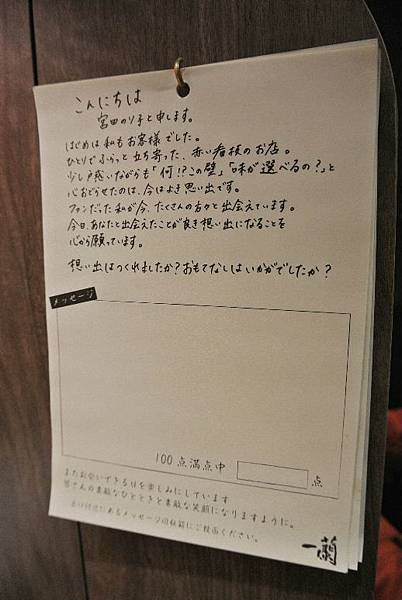 こんにちは
宮田のり子と申します。
はじめは私もお客様でした。
ひとりでふらっと立ち寄った、赤い看板のお店。
少し戸惑いながらも「何!?この壁」「味が選べるの?」と
心おどらせたのは、今はよき思い出です。
ファンだった私が今、たくさんの方々と出会えています。
今日、あなたと出会えたことが良き想い出になることを
心から願っています。
想い出はつくれましたか?おもてなしはいかがでしたか?
メッセージ
100点満点中 点
またお会いできる日を楽しみにしています
皆さんの素敵なひとときと素敵な笑顔になりますように。
あるメッセージ回収箱にご投函ください。
一蘭